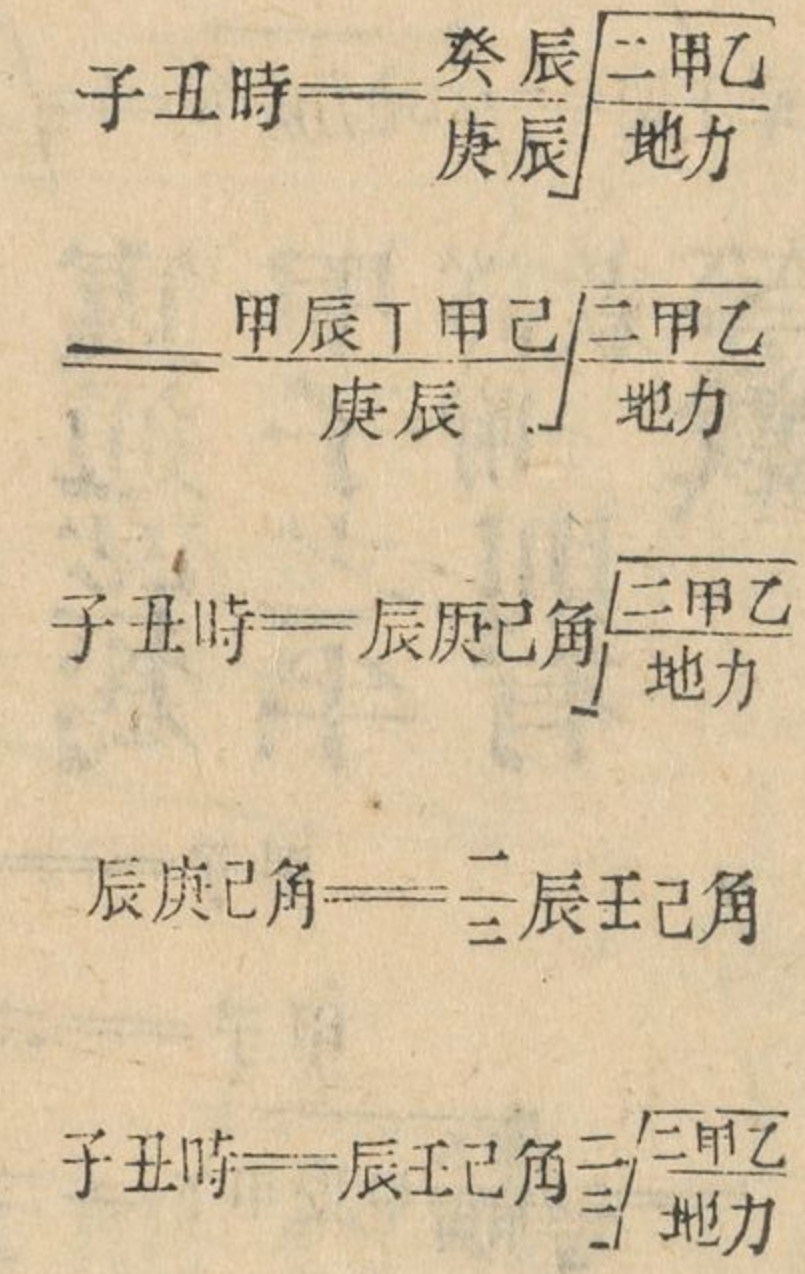 子丑時=癸辰/庚辰√二甲乙/地力
=甲辰丅甲己/庚辰√二甲乙/地力
子丑時=辰庚己角√二甲乙/地力
辰庚己角=一/二辰壬己角
子丑時=辰壬己角一/二√二甲乙/地力